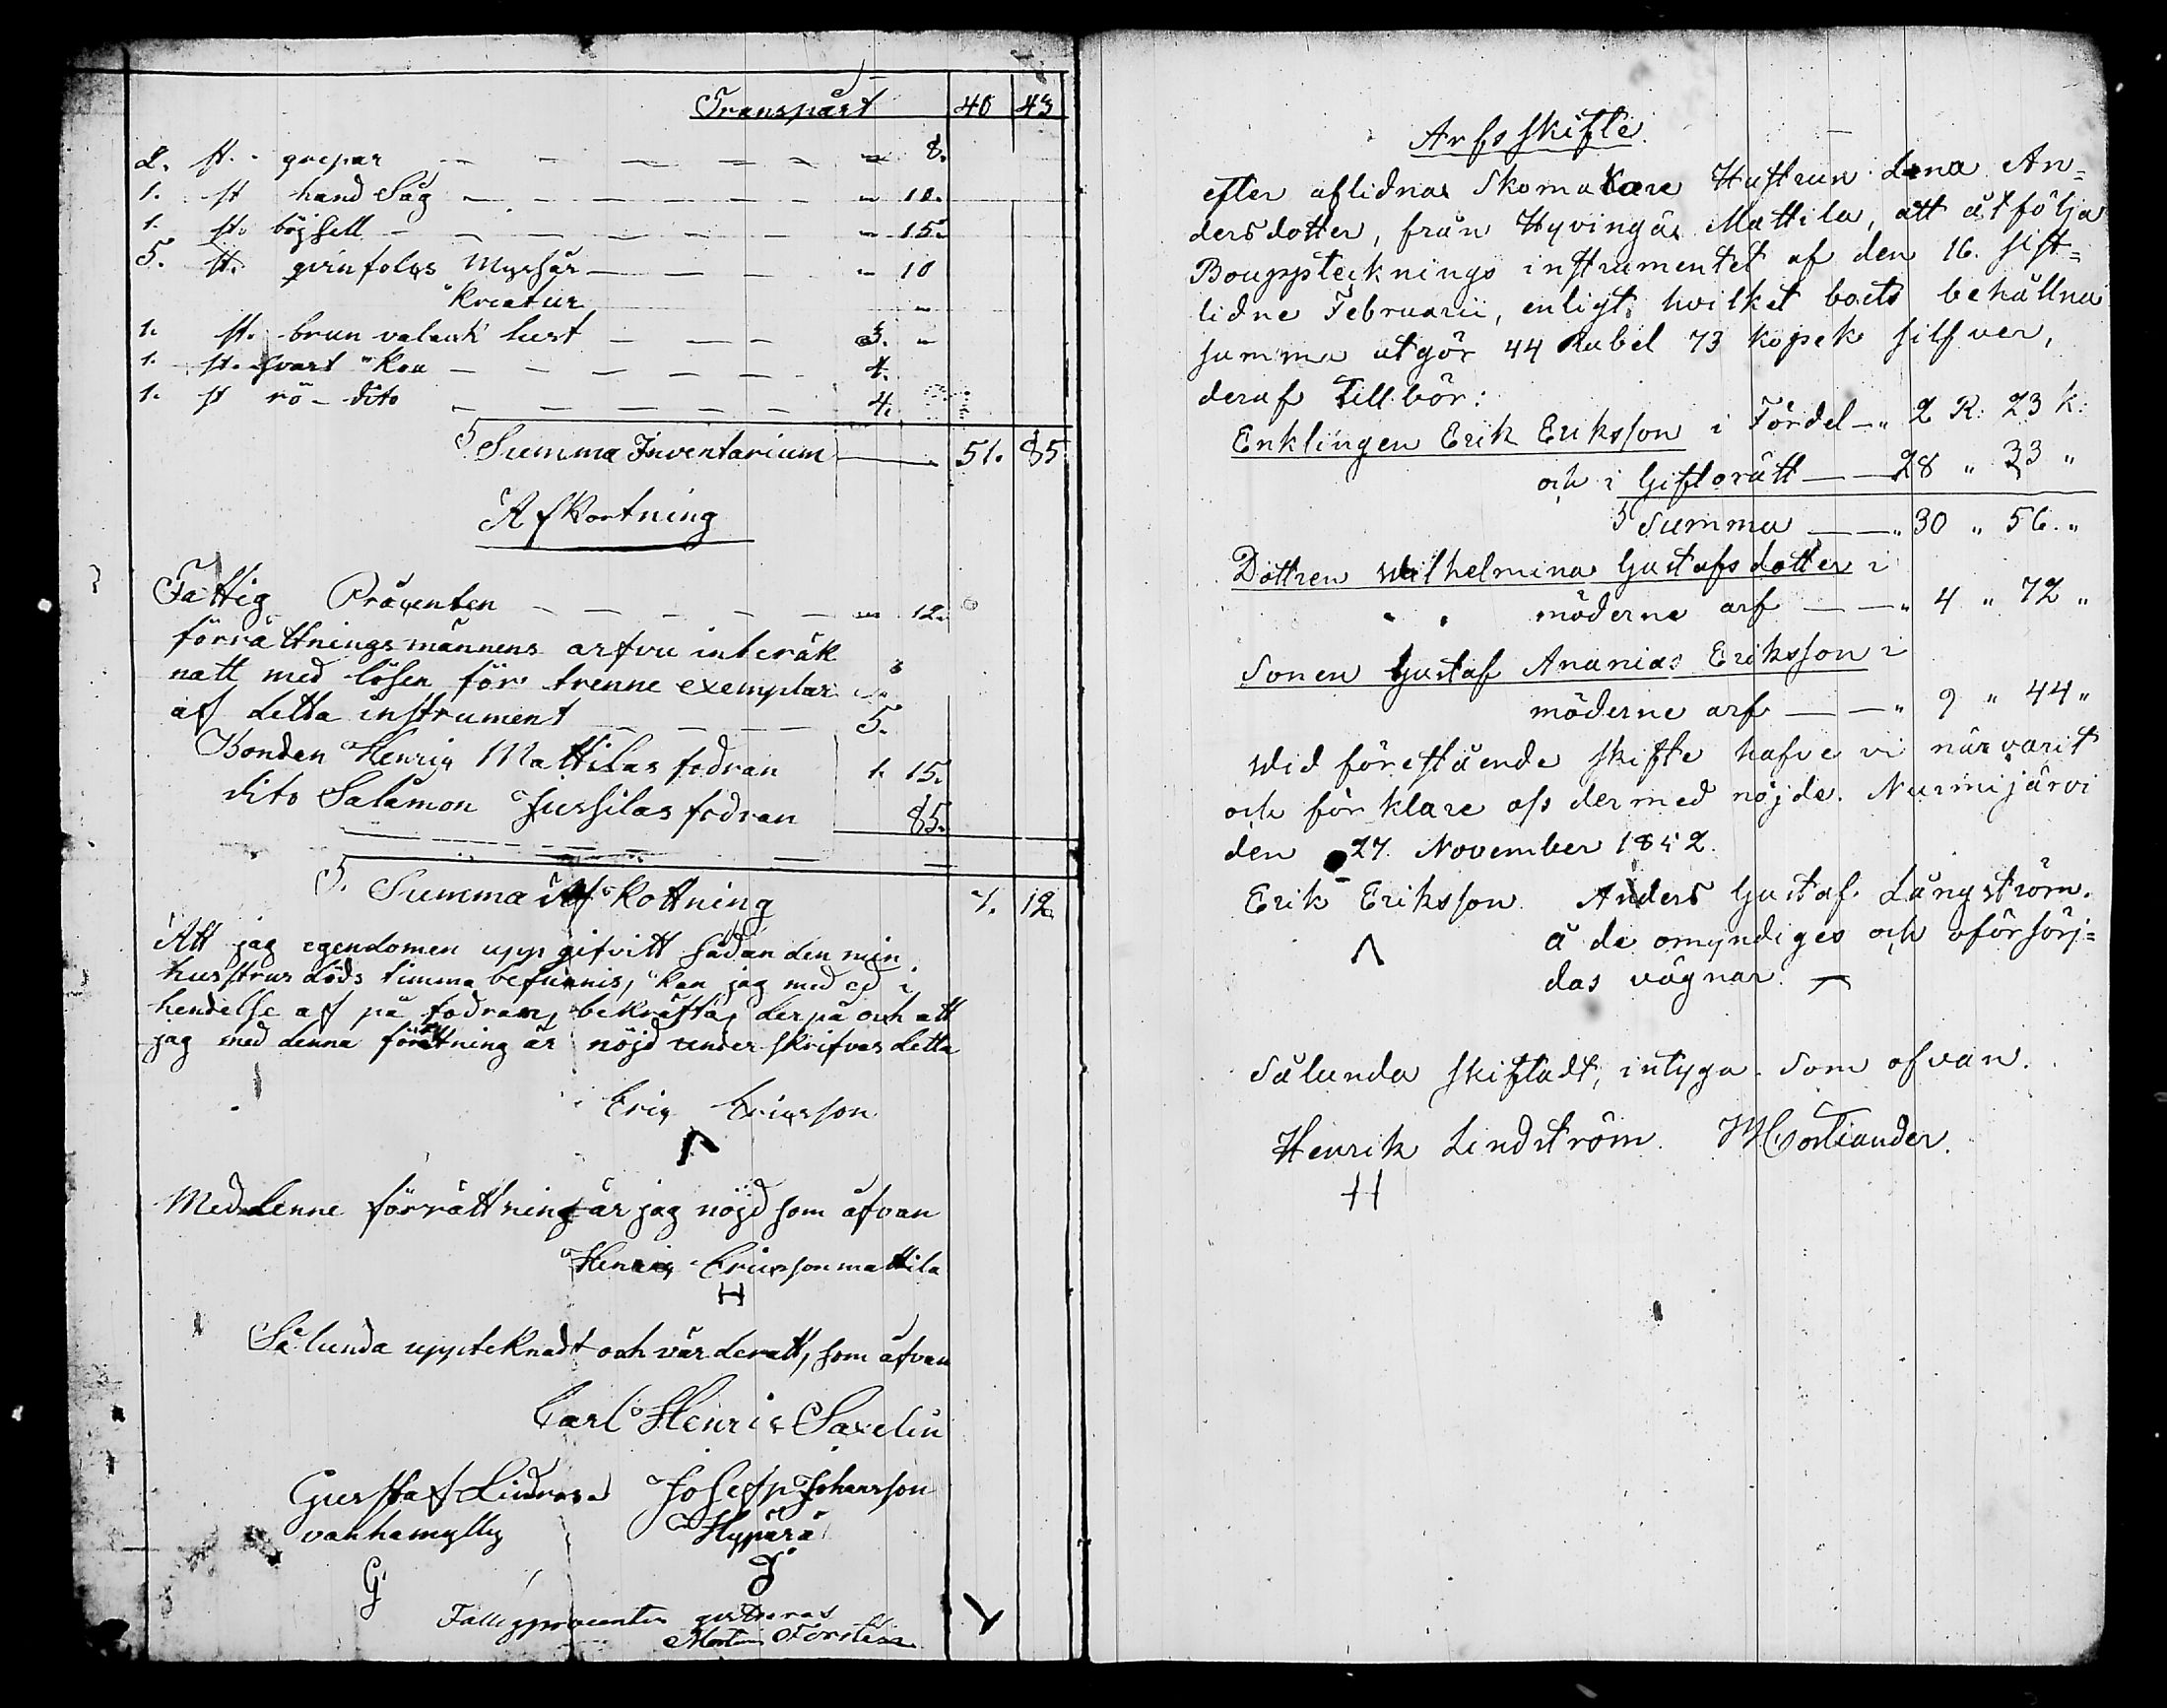 Transpårt 40 43
2. st. grepar 8.
1. st hand Såg 10.
1. st. böjsell 15.
5. st. qvinfolcks Myssår 10
Kreatur
1. st. brun valack hest 3.
1. st. svart Ko 4.
1. st rö dito 4.
Summa Inventarium 51. 85
Afkortning
Fattig Pråcenten 12.
förrättningsmännens arfvu inberäk
natt med lösen för trenne exemplar
af detta instrument 5.
Bonden Henric Mattilas fodran 1. 15.
dito Salåmon Jussilas fodran 85.
S. Summa Afkottning 7. 12.
Att jag egendomen uppgifvitt sådan den min
husstrus döds timma befunnis, kan jag med ed i
hendelse af på fodran, bekräfta, der på och att
jag med denna förättning är nöjd under skrifves detta
Eric Ericsson
Med denne förrättning är jag nöjd som åfvan
Henric Ericsson mattila
H
Så lunda uppteknadt och värderatt, som åfvan
Carl Henric Saxelin
Gustaf Lindroos Josefp Johansson
vanhamylly Hypärä
G J
Fattigprocenten qvitteras
Martin Forstén
Arfsskifte
efter aflidna Skomakare Hustrun Lena An=
dersdotter, från Hyvingää Mattila, att åtfölja
Bouppteknings instrumentet af den 16. sist=
lidne Februarii, enligt hvilket boets behållna
summa utgör 44 Rubel 73 kopek silfver,
deraf tillbör:
Enklingen Erik Eriksson i Fördel 2 R: 23 k:
och i Giftorätt 28 " 33 "
Summa 30 " 56. "
Dottren Wilhelmina Gustafsdotter i
möderne arf 4 " 72 "
Sonen Gustaf Ananias Eriksson i
möderne arf 9 " 44 "
Wid förestående skifte hafve vi närvarit
och förklare oss dermed nöjde. Nurmijärvi
den 27. November 1852.
Erik Eriksson. Anders Gustaf Långström.
å de omyndiges och oförsörj=
das vägnar.
Sålunda skiftadt, intyga som ofvan.
Henrik Lindström. M Costiander.
H